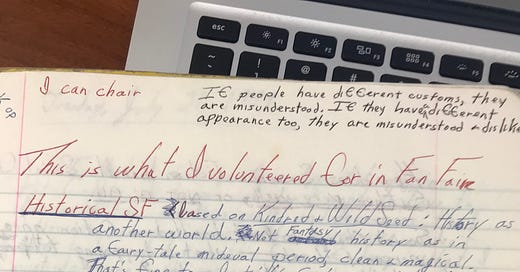 esc
F1
F2
F3
F4
F5
~
!
@
I can chair
If people have different customs, they
are misunderstood. If they have different
appearance too, they are misunderstood & dislike
This is what I volunteered for in Fan Faire
Historical SF based on Kindred & Wild Seed: History as
another world. Not Fantasy history as in
a fairy-tale mideval period, clean & magical.
That's fine